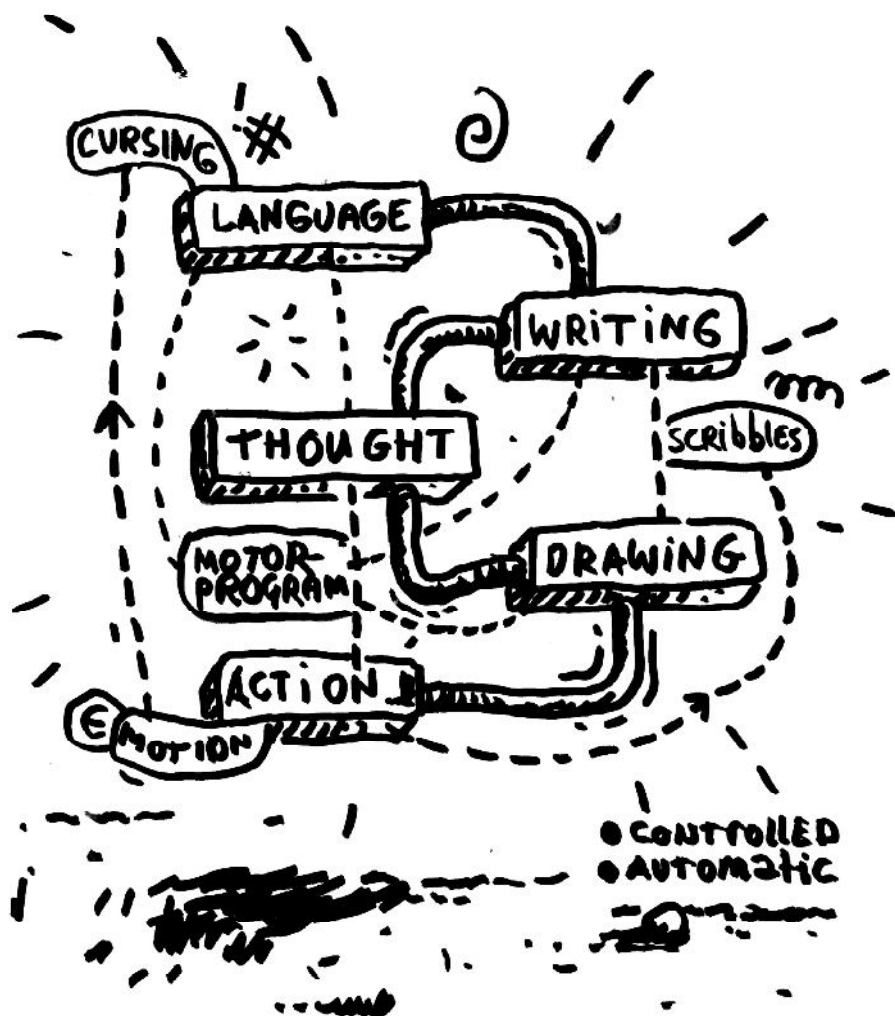 CURSING
LANGUAGE
WRiTiNG
THOUGHT
SCRibbLES
MOTOR-
PROGRAM
DRAWiNG
ACTiON
E
MOTION
• CONTrOLLED
• AUTOMaTiC